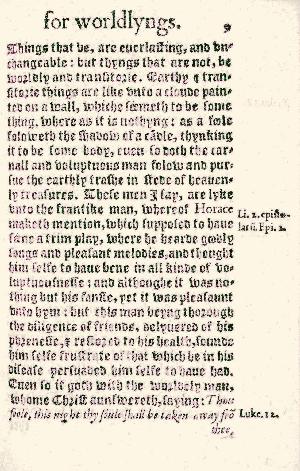 for worldlyngs. 9
Things that be, are euerlasting, and vn-
changeable: but thyngs that are, not, be
worldly and transitorie. Earthy & tran-
sitorie things are like vnto a cloude pain-
ted on a wall, whiche séemeth to be some
thing, where as it is nothyng: as a fole
foloweth the shadow of a cādle, thynking
it to be some body, euen so doth the car-
nall and voluptuous man folow and pur-
sue the earthly trashe in stede of heauen-
ly treasures. These men I say, are lyke
vnto the frantike man, whereof Horace
maketh mention, which supposed to haue
sene a trim play, where he hearde goodly
songs and pleasant melodies, and thought
him selfe to haue bene in all kinde of vo-
luptuousnesse: and althoughe it was no-
thing but his fansie, yet it was pleasaunt
vnto hym: but this man beyng thorough
the diligence of friends, delyuered of his
phrenesie, & restored to his health, founde
him selfe frustrate of that which he in his
disease persuaded him selfe to haue had.
Euen so it goeth with the worldely man,
whome Christ aunswereth, saying: Thou
foole, this night thy soule shall be taken away frō
thee,
Li. 2. episto-
larū. Epi. 2.
Luke. 12.